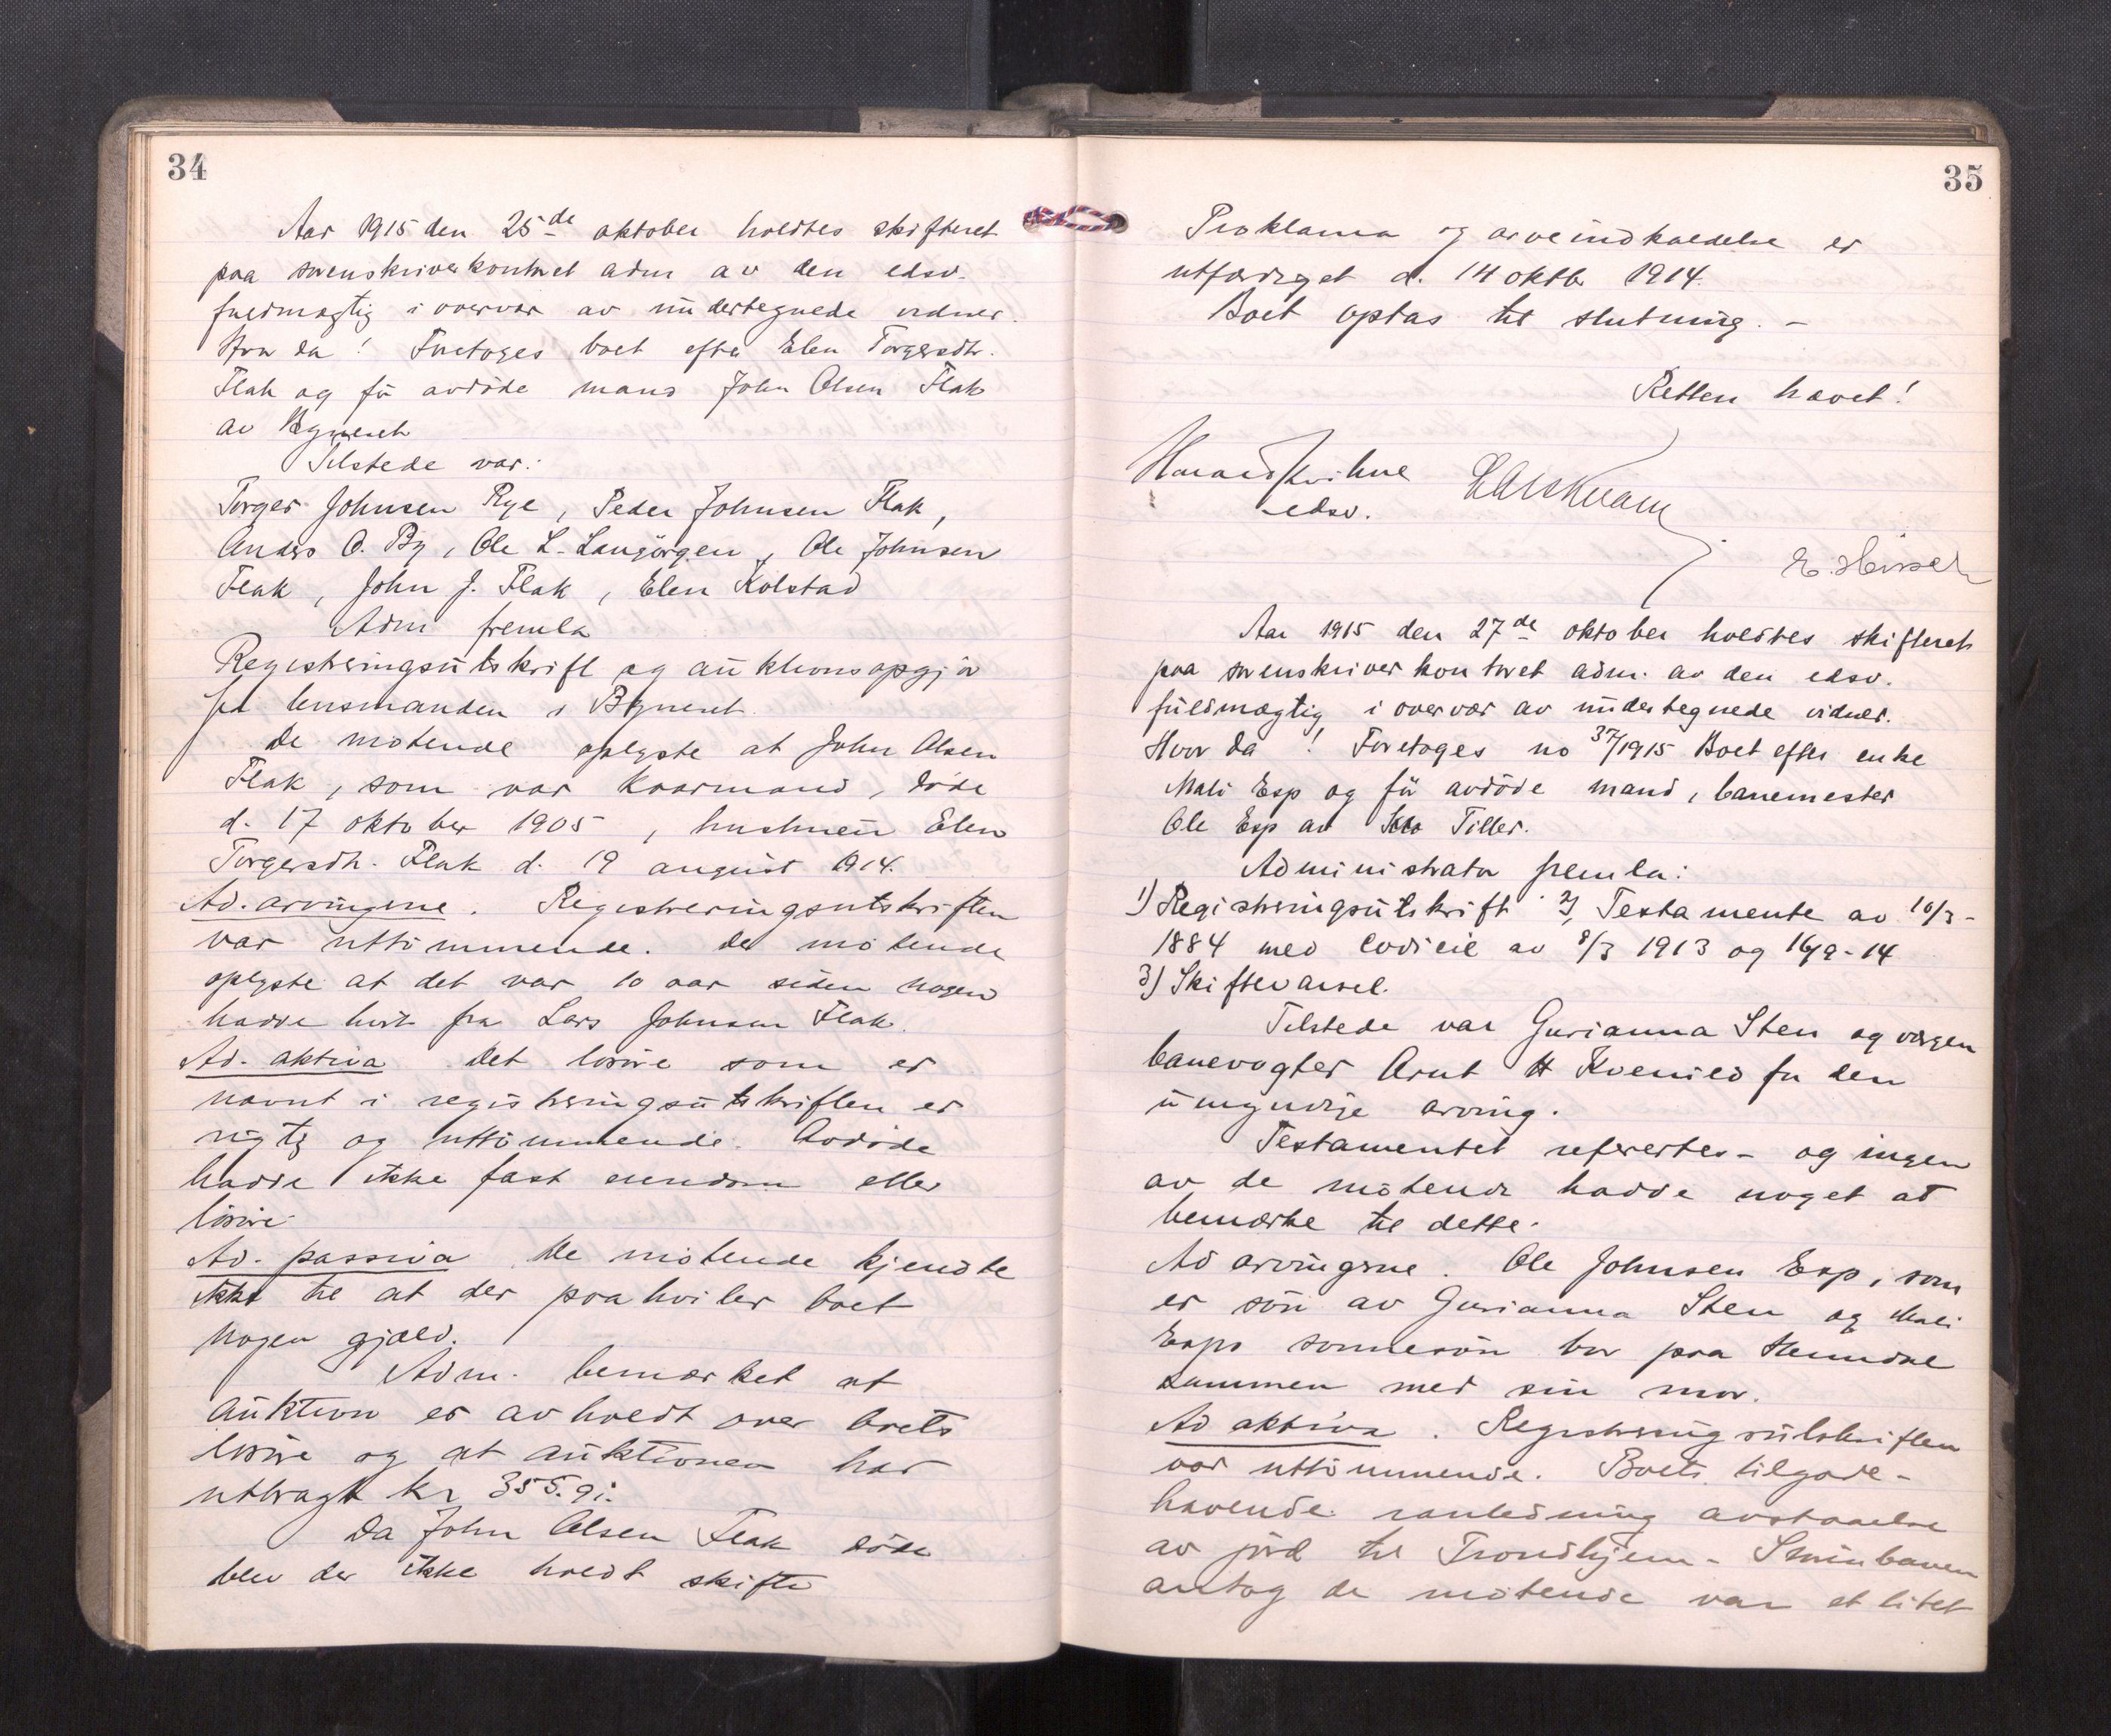 34
Aar 1915 den 25de oktober holdtes skifteret
paa sorenskriverkontoret adm av den edsv.
fuldmægtig i overvær av undertegnede vidner.
Hvor da! Foretoges boet efter Elen Torgersdtr.
Flak og før avdøde mand John Olsen Flak
av Bynesset
Tilstede var:
Torger Johnsen Rye, Peder Johnsen Flak,
Anders O. By, Ole L. Langörgen, Ole Johnsen
Flak, John J. Flak, Elen Kolstad
Adm fremla
Registreringsutskrift og auktionsopgjør
fra lensmanden i Bynesset.
De møtende oplyste at John Olsen
Flak, som var kaarmand, døde
d. 17 oktober 1905, hustruen Elen
Torgersdtr. Flak d. 19 august 1914.
Ad. arvingene. Registreringsutskriften
var uttømmende. De møtende
oplyste at det var 10 aar siden nogen
hadde hørt fra Lars Johnsen Flak.
Ad. aktiva Det løsøre som er
nævnt i registreringsutskriften er
rigtig og uttømmende. Avdøde
hadde ikke fast eiendom eller
løsøre.
Ad. passiva De møtende kjendte
ikke til at der paahviler boet
nogen gjæld.
Adm. bemærket at
auktion er avholdt over boets
løsøre og at auktionen har
utbragt kr 355.91.
Da John Olsen Flak døde
blev der ikke holdt skifte
35
Proklama og arveindkaldelse er
utfærdiget d. 14 oktbr 1914.
Boet optas til slutning. -
Retten hævet!
Harald
edsv.
E. Hirsch
Aar 1915 den 27de oktober holdtes skifteret
paa sorenskriverkontoret adm. av den edsv.
fuldmægtig i overvær av undertegnede vidner.
Hvor da! Foretoges no 37/1915 Boet efter enke
Mali Esp og før avdøde mand, banemester
Ole Esp av Tiller.
Administrator fremla:
1) Registreringsutskrift 2) Testamente av 10/3-
1884 med Codicil av 8/3 1913 og 16/2-14
3) Skiftevarsel.
Tilstede var Gurianna Sten og værgen
banevogter Arnt H Kvenild for den
umyndige arving.
Testamentet refereertes - og ingen
av de møtende hadde noget at
bemerke til dette.
Ad arvingene. Ole Johnsen Esp, som
er søn av Gurianna Sten og Mali
Esps sønnesøn bor paa Heimdal
sammen med sin mor.
Ad aktiva. Registreringsutskriften
var uttømmende. Boets tilgode-
havende i anledning avstaaelse
av jord til Trondhjem - Størenbanen
antog de møtende var et litet